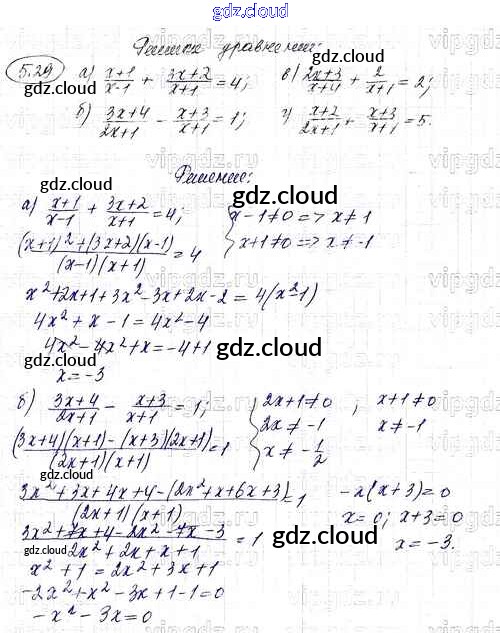 gdz.cloud
gdz.cloud
Решить уравнения:
5.29 а) (x+1)/(x-1) + (3x+2)/(x+1) = 4; в) (2x+3)/(x+4) + 2/(x+1) = 2;
б) (3x+4)/(2x+1) - (x+3)/(x+1) = 1; г) (x+2)/(2x+1) + (x+3)/(x+1) = 5.
Решение:
gdz.cloud gdz.cloud
а) (x+1)/(x-1) + (3x+2)/(x+1) = 4; { x-1≠0 => x≠1
x+1≠0 => x≠-1
((x+1)²+(3x+2)(x-1))/((x-1)(x+1)) = 4
x²+2x+1+3x²-3x+2x-2 = 4(x²-1)
4x²+x-1=4x²-4
4x²-4x²+x=-4+1
gdz.cloud gdz.cloud
x=-3
б) (3x+4)/(2x+1) - (x+3)/(x+1) = 1; { 2x+1≠0, x+1≠0
2x≠-1 x≠-1
x≠-1/2
((3x+4)(x+1)-(x+3)(2x+1))/((2x+1)(x+1)) = 1
gdz.cloud
(3x²+3x+4x+4-(2x²+x+6x+3))/((2x+1)(x+1)) = 1 -x(x+3)=0
x=0; x+3=0
x=-3.
(3x²+7x+4-2x²-7x-3)/(2x²+2x+x+1) = 1
gdz.cloud gdz.cloud
x²+1=2x²+3x+1
-2x²+x²-3x+1-1=0
-x²-3x=0